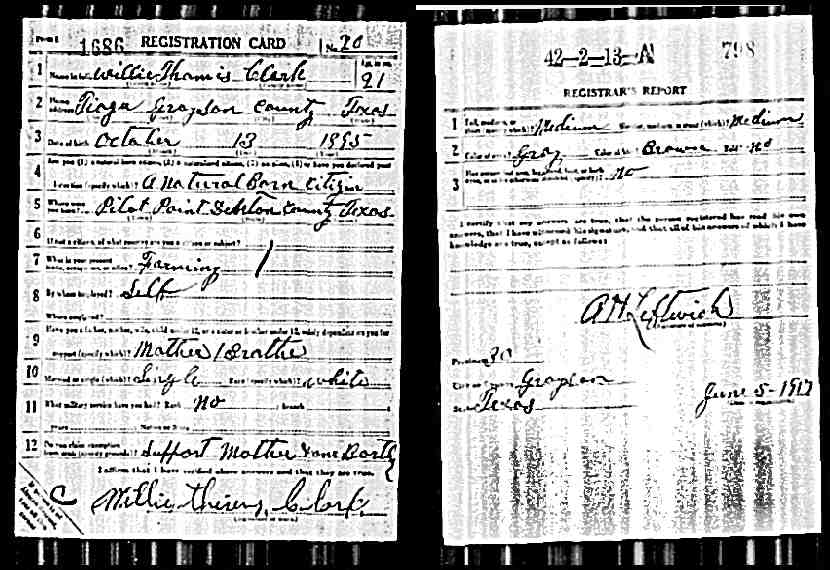 Form 1 1686 REGISTRATION CARD No. 20
1 Name in full Willie Thomis Clark Age, in yrs. 21
2 Home address Tioga Grayson County Texas
3 Date of birth October 13 1995
4 Are you (1) a natural born citizen, (2) a naturalized citizen, (3) an alien, (4) or have you declared your
intention (specify which)? A Natural Born Citizin
5 Where were you born? Pilot Point Denton County Texas
6 If not a citizen, of what country are you a citizen or subject?
7 What is your present trade, occupation, or office? Farming
8 By whom employed? Self
Where employed?
9 Have you a father, mother, wife, child under 12, or a sister or brother under 12, solely dependent on you for
support (specify which)? Mother / Brothe
10 Married or single (which)? Single Race (specify which)? white
11 What military service have you had? Rank no ; branch
years ; Nation or State
12 Do you claim exemption from draft (specify grounds)? Support Mother & one
I affirm that I have verified above answers and that they are true.
C Willie Clark
(Signature or mark)
42-2-13-A 798
REGISTRAR'S REPORT
1 Tall, medium, or short (specify which)? Medium Slender, medium, or stout (which)? Medium
2 Color of eyes? Gray Color of hair? Brown Bald? No
3 Has person lost arm, leg, hand, foot, or both eyes, or is he otherwise disabled (specify)? no
I certify that my answers are true, that the person registered has read his own
answers, that I have witnessed his signature, and that all of his answers of which I have
knowledge are true, except as follows:
A H Leftwich
(Signature of registrar)
Precinct 20
City or County Grayson
State Texas June 5-1917